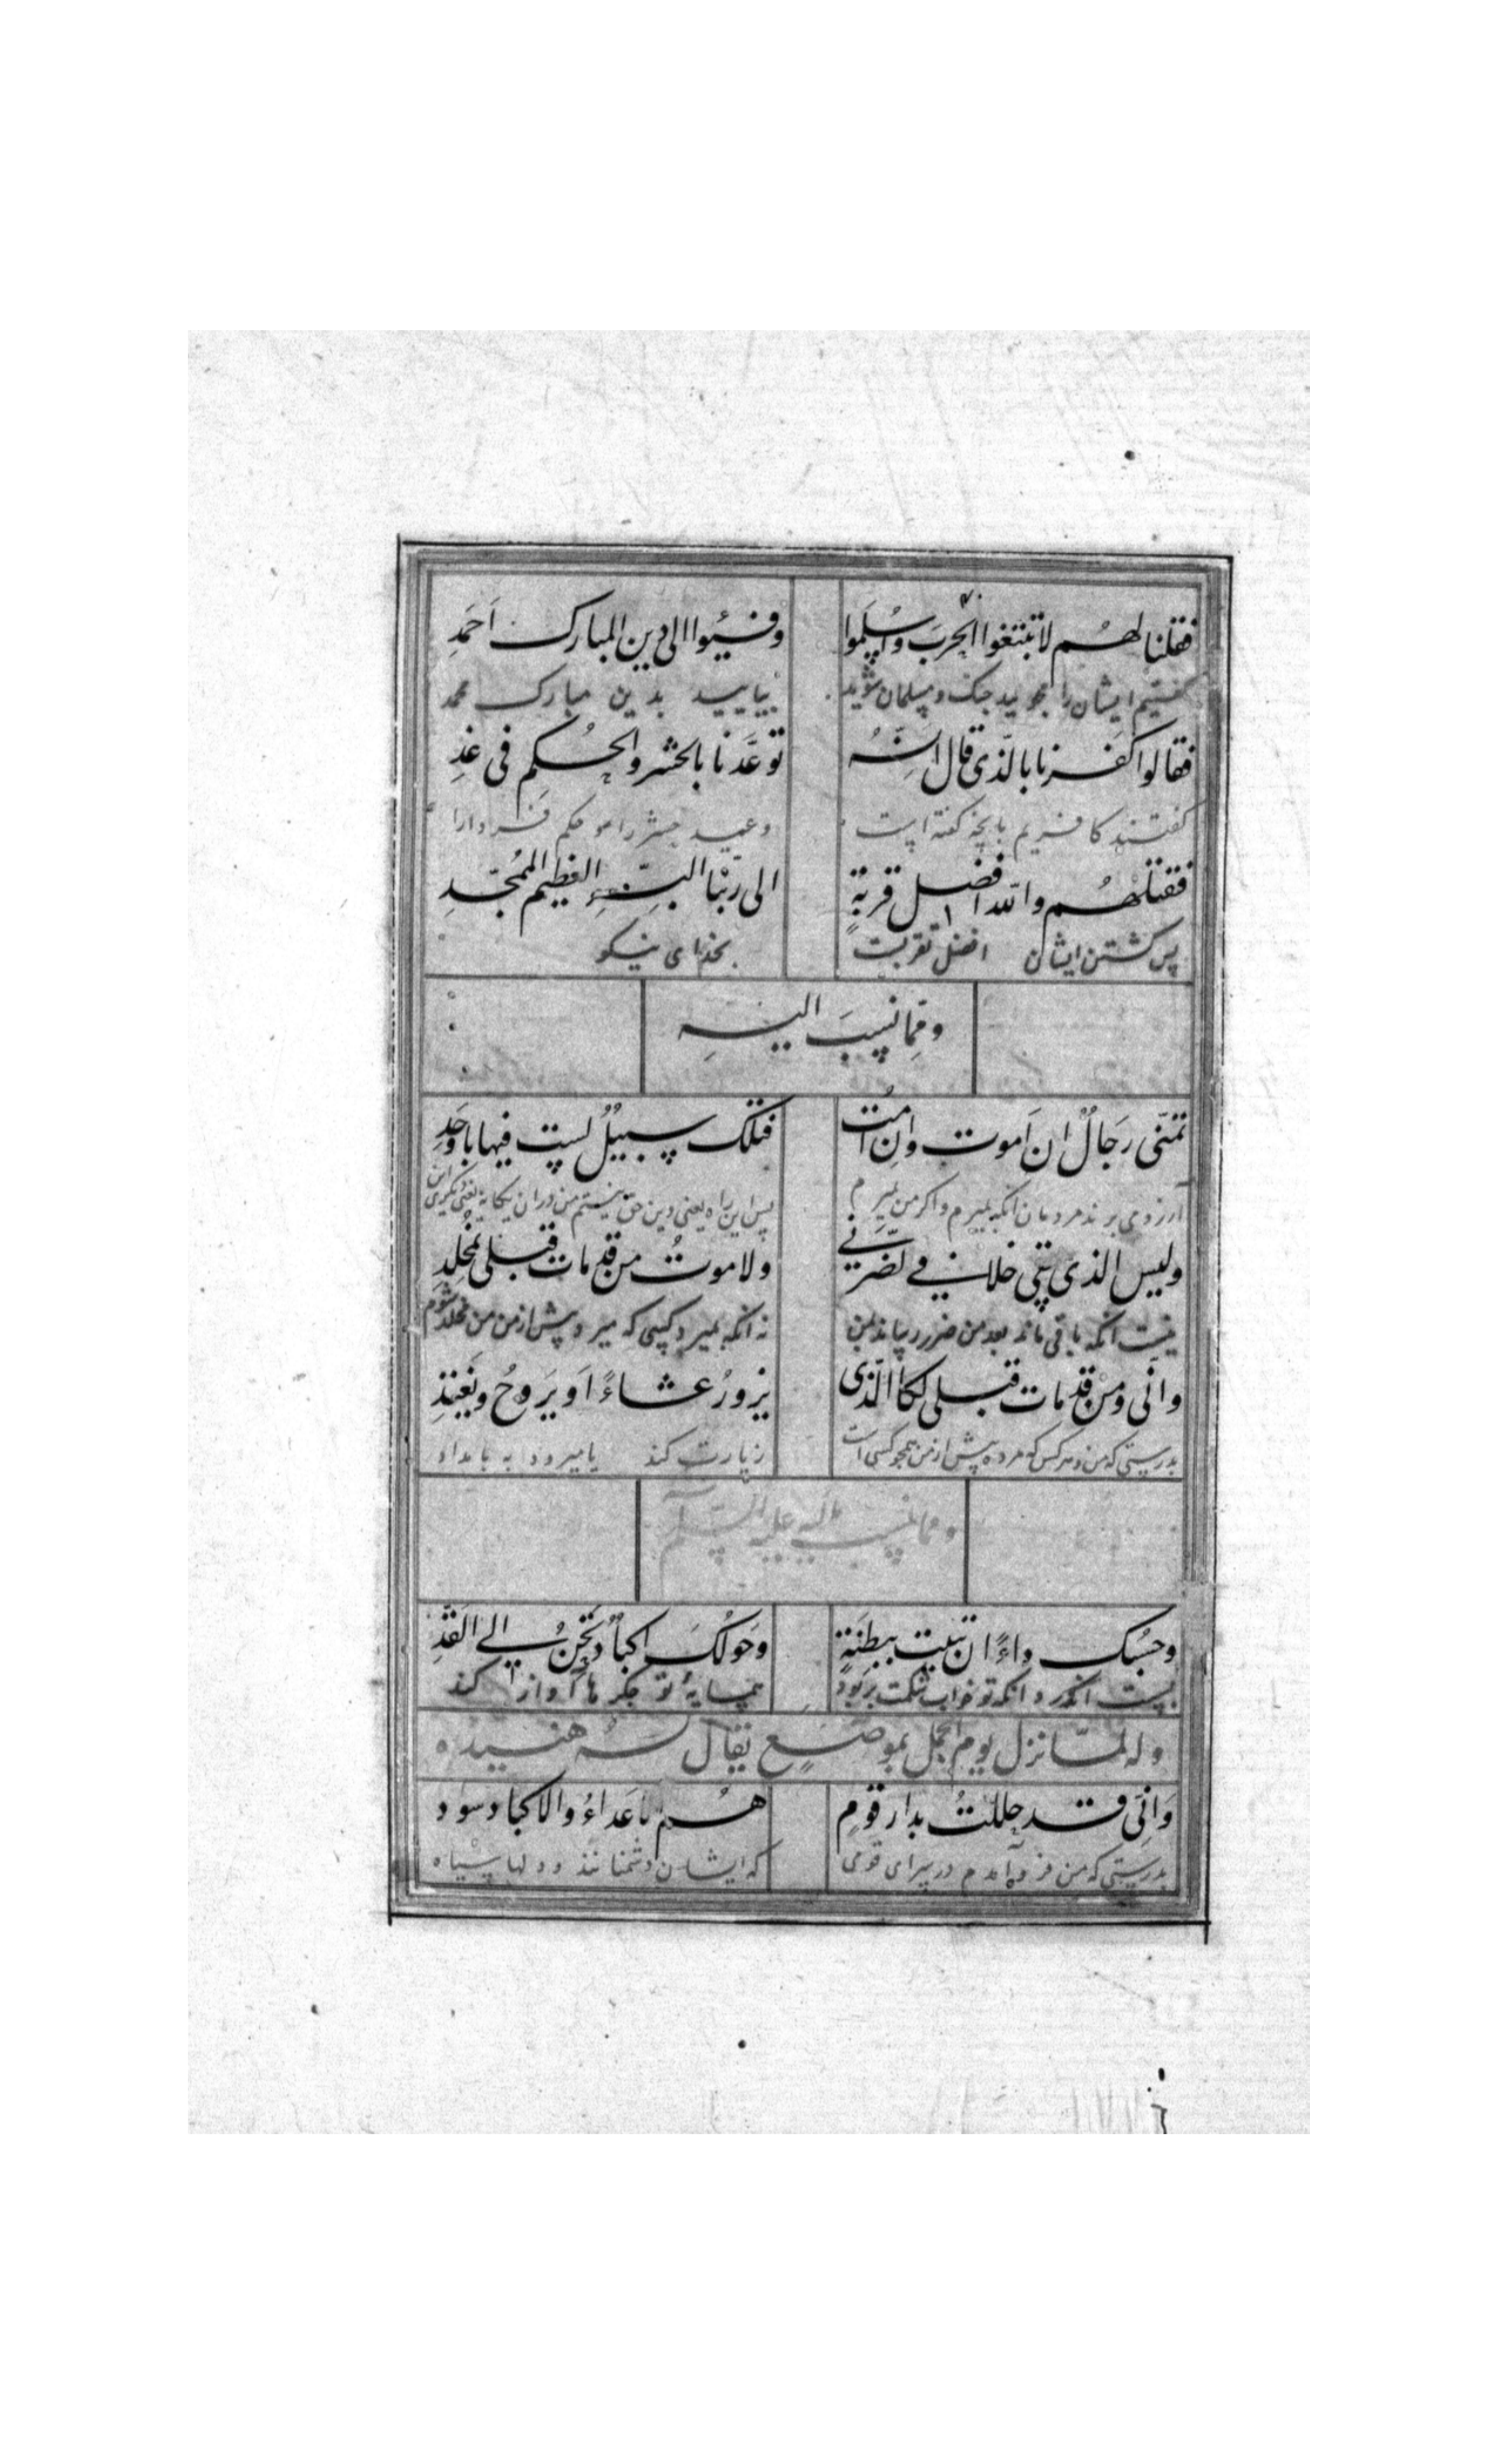 فقلنا لهم لا تبتغوا الحرب واسلموا وفيئوا الی دین المبارک احمد
گفتیم ایشان را مجویید جنگ و مسلمان شوید بیایید بدین مبارک محمد
فقالوا کفرنا بالّذی قال انّه توعّدنا بالحشر والحُکم فی غدِ
گفتند کافریم بانچه گفته است وعید حشر را و حکم فردا را
فقتلهُم واللّه افضل قربةٍ الی ربّنا البرّ العظیم الممُجّدِ
پس کشتن ایشان افضل تقربت بخدای نیکو
وممّا نسبَ الیه
تمنّی رجالٌ ان اَموت وان اَمُت فتلک سبیلٌ لست فیها باَوحَدِ
آرزو می برند مردمان انکه بمیرم واکر من بمیرم پس این راه یعنی دین حق نیستم من در ان یکانه یعنی
ولیس الذی یبقی خلافی یضرّنی ولا موتُ من قد مات قبلی بمُخلِدِ
نیست انکه باقی ماند بعد من ضرر رساند بمن نه انکه بمیرد کسی که میرد پیش از من من مخلد شوم
وانّی ومن قد مات قبلی لکا الّذی یزورُ عشاءً اَو یَروحُ ویَغتدِ
بدرستی که من و هرکس که مرده پیش از من همچو کسی است زیارت کند یا میرود به بامداد
وممّا نسب الیه علیه السّلم
وحسبک داءً ان تبیت ببطنَةٍ وحَولکَ اکبادٌ تحنُّ الی القدِّ
بست انکه درد انکه تو خواب شکمت پر بود همسایهٔ تو جکرها آواز کند
وله لمّا نزل یوم الجمل بموضعٍ یقال له هنیده
وَانّی قد حللتُ بدار قومٍ هُم الاَعداءُ والاکباد سود
بدرستی که من فرو آمدم در سرای قومی که ایشان دشمنانند و دلها سیاه